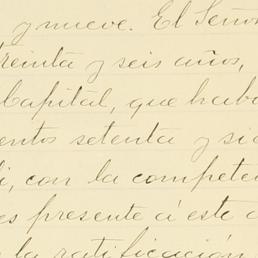 y nueve. El Seño
reinta y seis años,
Capital, que habi
entos setenta y si
i, con la compete
es presente á este a
la ratificación